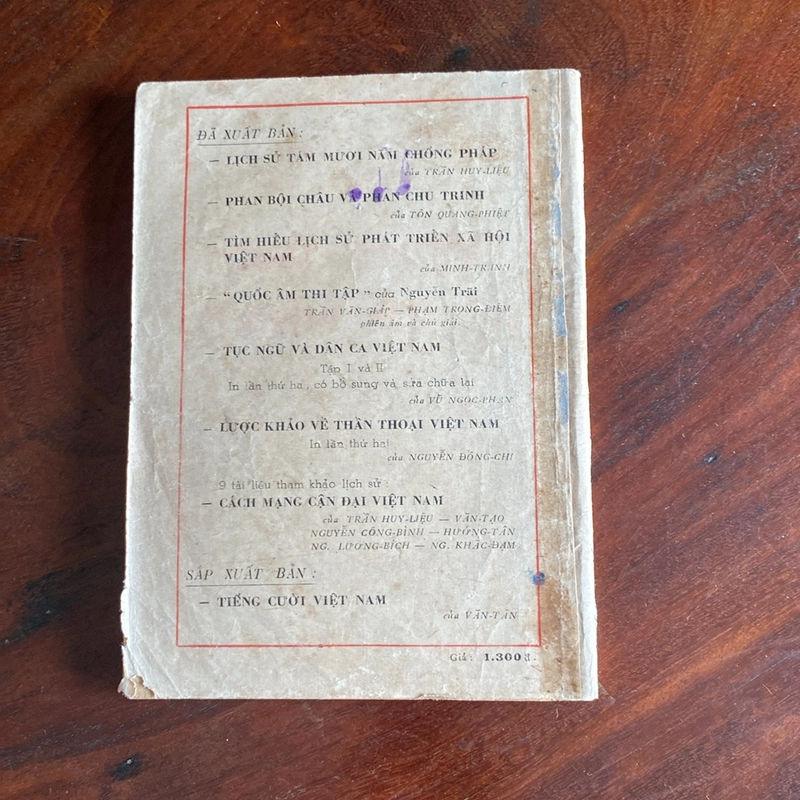 ĐÃ XUẤT BẢN :
— LỊCH SỬ TÁM MƯƠI NĂM CHỐNG PHÁP
của TRẦN HUY-LIỆU
— PHAN BỘI CHÂU VÀ PHAN CHU TRINH
của TÔN QUANG-PHIỆT
— TÌM HIỂU LỊCH SỬ PHÁT TRIỂN XÃ HỘI
VIỆT NAM
của MINH-TRANH
— “QUỐC ÂM THI TẬP” của Nguyễn Trãi
TRẦN VĂN-GIÁP — PHẠM TRỌNG-ĐIỀM
phiên âm và chú giải.
— TỤC NGỮ VÀ DÂN CA VIỆT NAM
Tập I và II
In lần thứ hai, có bổ sung và sửa chữa lại
của VŨ NGỌC-PHAN
— LƯỢC KHẢO VỀ THẦN THOẠI VIỆT NAM
In lần thứ hai
của NGUYỄN ĐỔNG-CHI
9 tài liệu tham khảo lịch sử :
— CÁCH MẠNG CẬN ĐẠI VIỆT NAM
của TRẦN HUY-LIỆU — VĂN-TẠO
NGUYỄN CÔNG-BÌNH — HƯỚNG-TÂN
NG. LƯƠNG-BÍCH — NG. KHẮC-ĐẠM
SẮP XUẤT BẢN :
— TIẾNG CƯỜI VIỆT NAM
của VĂN-TÂN
Giá : 1.300đ.